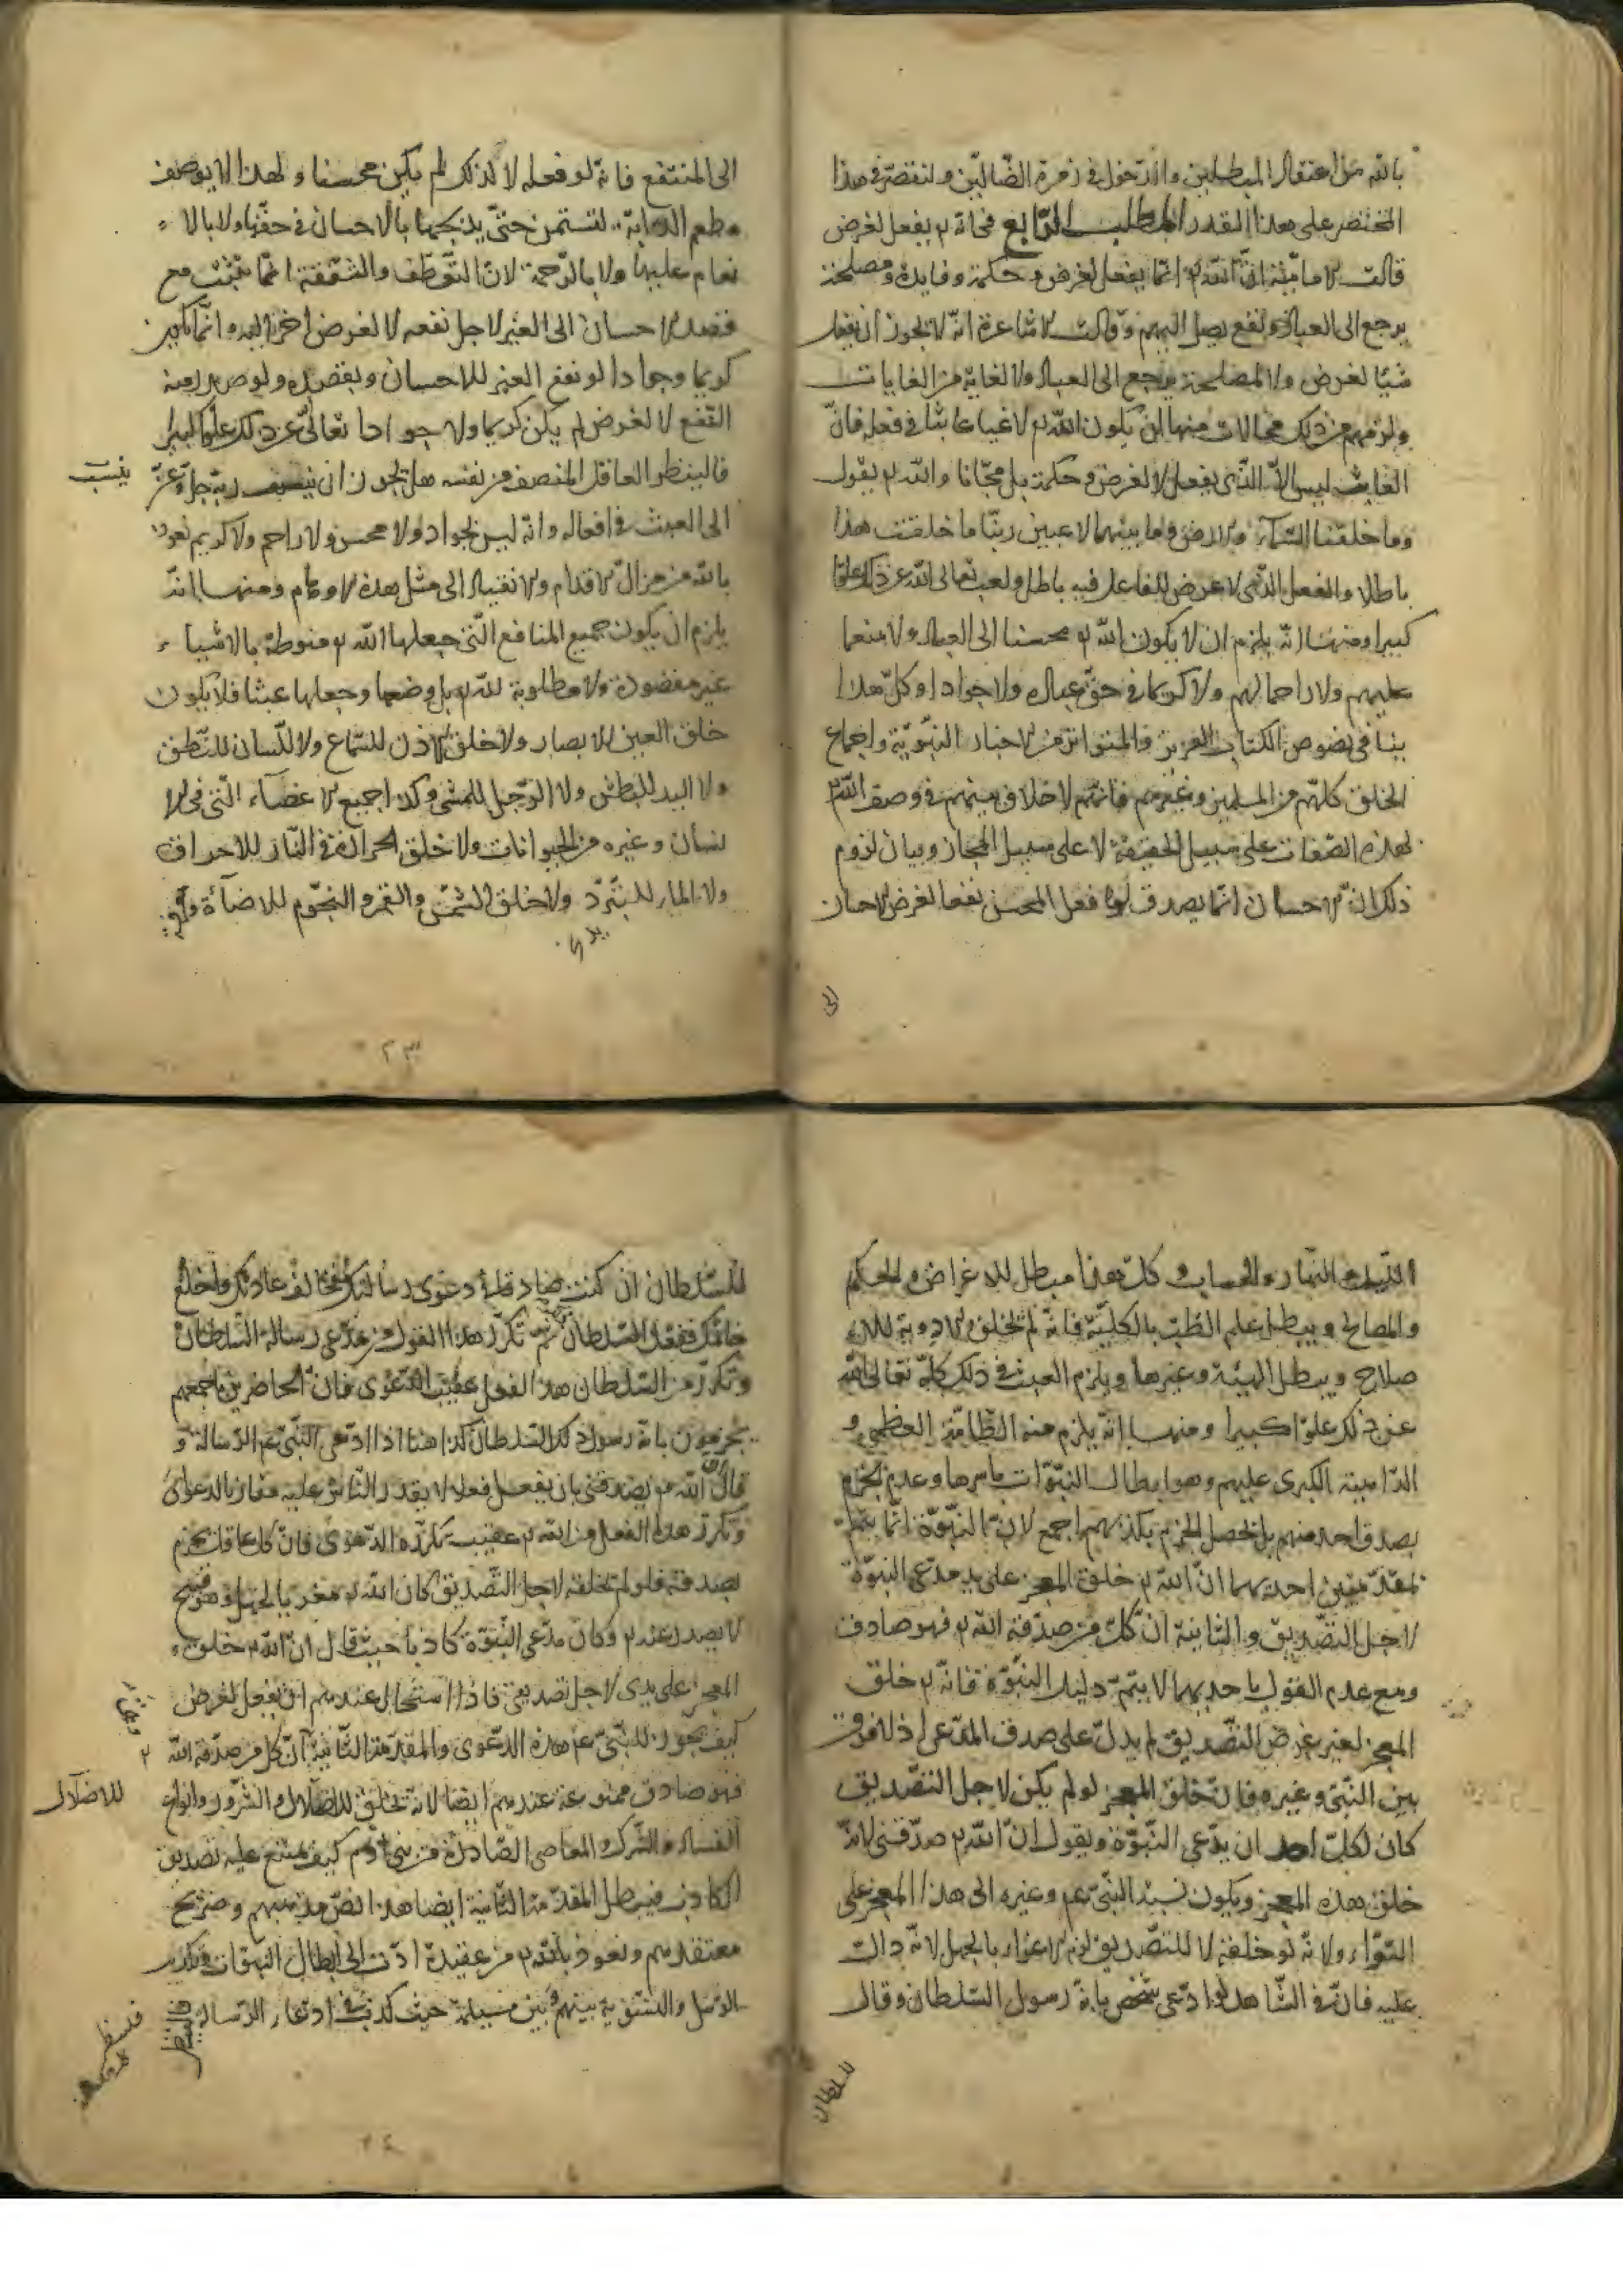 بالله من اعتقاد المبطلين والدخول في زمرة الضالين ولنقتصر في هذا
المختصر على هذا القدر المطلب الرابع في انه تعـ يفعل لغرض
قالت الامامية ان الله تعـ انما يفعل لغرض وحكمة وفايدة ومصلحة
يرجع الى العباد ونفع يصل اليهم وقالت الاشاعرة انه لا يجوز ان يفعل
شيئا لغرض ولا لمصلحة يرجع الى العباد ولا لغاية من الغايات
ولزمهم من ذلك محالات منها ان يكون الله تعـ لاعبا عابثا في فعله فان
العابث ليس الا الذي يفعل لا لغرض وحكمة بل مجانا والله تعـ يقول
وما خلقنا السماء والارض وما بينهما لاعبين ربنا ما خلقت هذا
باطلا والفعل الذي لا غرض للفاعل فيه باطل ولعب تعالى الله عن ذلك علوا
كبيرا ومنها انه يلزم ان لا يكون الله تعـ محسنا الى العباد ولا منعما
عليهم ولا راحما لهم ولا كريما في حق عباده ولا جوادا وكل هذا
ينافي نصوص الكتاب العزيز والمتواتر من الاخبار النبوية واجماع
الخلق كلهم من المسلمين وغيرهم فانهم لا خلاف بينهم في وصف الله تعـ
لهذه الصفات على سبيل الحقيقة لا على سبيل المجاز وبيان لزوم
ذلك ان الاحسان انما يصدق لو فعل المحسن نفعا لغرض الاحسان
الى
الى المنتفع فانه لو فعله لا لذلك لم يكن محسنا ولهذا لا يوصف
مطعم الدابة لتستمن حتى يذبحها بالاحسان في حقها ولا بالا
نعام عليها ولا بالرحمة لان التعطف والشفقة انما يثبت مع
قصد الاحسان الى الغير لاجل نفعه لا لغرض اخر اليه وانما يكون
كريما وجوادا لو نفع الغير للاحسان وبقصده ولو صدر منه
النفع لا لغرض لم يكن كريما ولا جوادا تعالى عن ذلك علوا كبيرا
فالينظر العاقل المنصف من نفسه هل يجوز ان ينسب ربه جل وعز
ينسب
الى العبث في افعاله وانه ليس بجواد ولا محسن ولا راحم ولا كريم نعوذ
بالله من مزال الاقدام والانقياد الى مثل هذه الاوهام ومنها انه
يلزم ان يكون جميع المنافع التي جعلها الله تعـ منوطة بالاشياء
غير مقصودة ولا مطلوبة لله تعـ بل وضعها وجعلها عبثا فلا يكون
خلق العين للابصار ولا خلق الاذن للسماع ولا اللسان للنطق
ولا اليد للبطش ولا الرجل للمشي وكذا جميع الاعضاء التي في الا
نسان وغيره من الحيوانات ولا خلق الحرارة في النار للاحراق
ولا الماء للتبرد ولا خلق الشمس والقمر والنجوم للاضاءة
٢٣
الليل والنهار والحساب وكل هذا مبطل للاغراض والحكم
والمصالح ويبطل علم الطب بالكلية فانه لم يخلق الادوية للا
صلاح ويبطل الهيئة وغيرها ويلزم العبث في ذلك كله تعالى الله
عن ذلك علوا كبيرا ومنها انه يلزم منه الطامة العظمى و
الداهية الكبرى عليهم وهو ابطال النبوات باسرها وعدم الجزم
بصدق احد منهم بل يحصل الجزم بكذبهم اجمع لان النبوة انما يتم
بمقدمتين احديهما ان الله تعـ خلق المعجز على يد مدعي النبوة
لاجل التصديق والثانية ان كل من صدقه الله تعـ فهو صادق
ومع عدم القول باحديهما لا يتم دليل النبوة فانه تعـ خلق
المعجز لغير غرض التصديق لم يدل على صدق المدعي اذ لا فرق
بين النبي وغيره فان خلق المعجز لو لم يكن لاجل التصديق
كان لكل احد ان يدعي النبوة ويقول ان الله تعـ صدقني لانه
خلق هذه المعجز ويكون نسبة النبي عم وغيره الى هذا المعجز على
السواء ولانه لو خلقه لا للتصديق لزم الاغراء بالجهل لانه دالت
عليه فان في الشاهد لو ادعى شخص بانه رسول السلطان وقال
للسلطان
للسلطان ان كنت صادقا في دعوى رسالتك فخالف عادتك واخلع
خاتمك ففعل السلطان ثم تكرر هذا القول من مدعي رسالة السلطان
وتكرر من السلطان هذا الفعل عقيب الدعوى فان الحاضرين باجمعهم
يجزمون بانه رسول ذلك السلطان كذا هنا اذا ادعى النبي عم الرسالة و
قال ان الله تعـ يصدقني بان يفعل فعلا لا يقدر الناس عليه مقارنا لدعواي
وتكرر هذا الفعل من الله تعـ عقيب تكرره الدعوى فان كل عاقل يجزم
بصدقه فلو لم يخلقه لاجل التصديق كان الله تعـ مغريا بالجهل وهو قبيح
لا يصدر عنه تعـ وكان مدعي النبوة كاذبا حيث قال ان الله تعـ خلق
المعجز على يدي لاجل تصديقي فاذا استحال عندهم ان يفعل لغرض
كيف يجوز للنبي عم هذه الدعوى والمقدمة الثانية ان كل من صدقه الله
فهو صادق ممنوعة عندهم ايضا لانه يخلق للاضلال والشرور وانواع
للاضلال
الفساد والشرك والمعاصي الصادرة من بني ادم كيف يمتنع عليه تصديق
الكاذب فيبطل المقدمة الثانية ايضا هذا نص مذهبهم وصريح
معتقدهم ونعوذ بالله تعـ من عقيدة ادت الى ابطال النبوات وتكذيب
الرسل والتسوية بينهم وبين مسيلمة حيث كذب في ادعاء الرسالة
فلينظر
٢٤